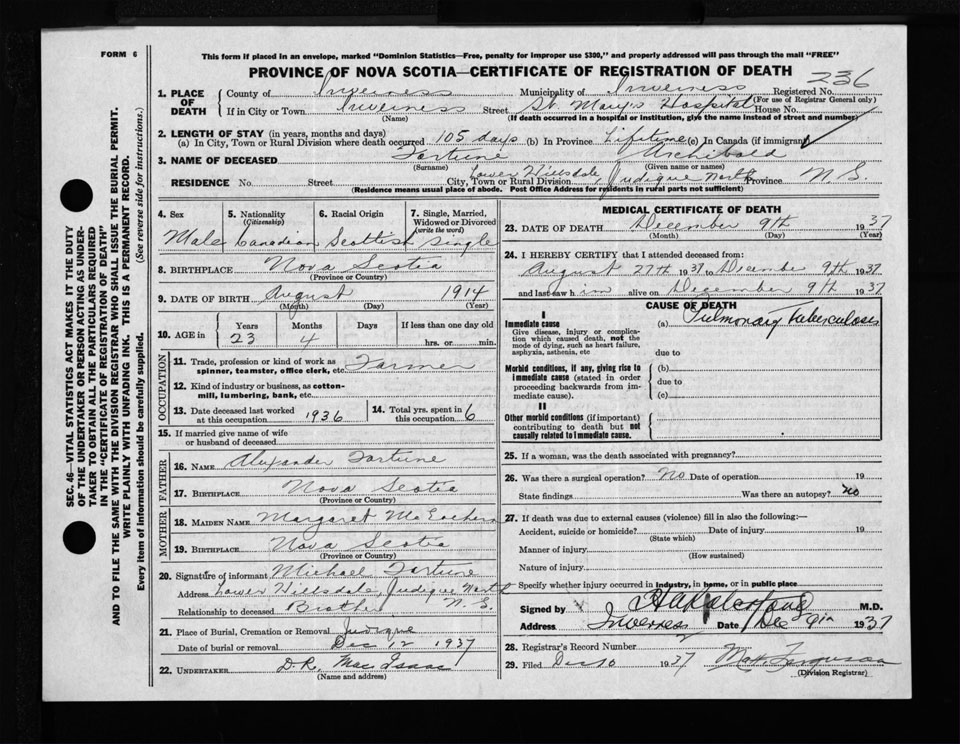 FORM 6
This form if placed in an envelope, marked "Dominion Statistics—Free, penalty for improper use $300," and properly addressed will pass through the mail "FREE"
PROVINCE OF NOVA SCOTIA—CERTIFICATE OF REGISTRATION OF DEATH
236
1. PLACE OF DEATH County of Inverness Municipality of Inverness Registered No.
(For use of Registrar General only)
If in City or Town Inverness Street St. Mary's Hospital House No.
(Name) (If death occurred in a hospital or institution, give the name instead of street and number)
2. LENGTH OF STAY (in years, months and days)
(a) In City, Town or Rural Division where death occurred 105 days (b) In Province Lifetime (c) In Canada (if immigrant)
3. NAME OF DECEASED Fortune Archibald
(Surname) (Given name or names)
RESIDENCE No. Street City, Town or Rural Division Lower Hillsdale, Judique North Province N.S.
(Residence means usual place of abode. Post Office Address for residents in rural parts not sufficient)
4. Sex Male
5. Nationality (Citizenship) Canadian
6. Racial Origin Scottish
7. Single, Married, Widowed or Divorced (write the word) Single
8. BIRTHPLACE Nova Scotia
(Province or Country)
9. DATE OF BIRTH August 1914
(Month) (Day) (Year)
10. AGE in Years 23 Months 4 Days If less than one day old hrs. or min.
OCCUPATION
11. Trade, profession or kind of work as spinner, teamster, office clerk, etc. Farmer
12. Kind of industry or business, as cotton-mill, lumbering, bank, etc.
13. Date deceased last worked at this occupation 1936
14. Total yrs. spent in this occupation 6
15. If married give name of wife or husband of deceased
FATHER
16. NAME Alexander Fortune
17. BIRTHPLACE Nova Scotia
(Province or Country)
MOTHER
18. MAIDEN NAME Margaret McEachern
19. BIRTHPLACE Nova Scotia
(Province or Country)
20. Signature of informant Michael Fortune
Address Lower Hillsdale, Judique North N.S.
Relationship to deceased Brother
21. Place of Burial, Cremation or Removal Judique
Date of burial or removal Dec 12 1937
22. UNDERTAKER D.R. MacIsaac
(Name and address)
MEDICAL CERTIFICATE OF DEATH
23. DATE OF DEATH December 9th 1937
(Month) (Day) (Year)
24. I HEREBY CERTIFY that I attended deceased from:
August 27th 1937 to December 9th 1937
and last saw him alive on December 9th 1937
CAUSE OF DEATH
I
Immediate cause (a) Pulmonary Tuberculosis
Give disease, injury or complication which caused death, not the mode of dying, such as heart failure, asphyxia, asthenia, etc
due to
Morbid conditions, if any, giving rise to immediate cause (stated in order proceeding backwards from immediate cause).
(b)
due to
(c)
II
Other morbid conditions (if important) contributing to death but not causally related to immediate cause.
25. If a woman, was the death associated with pregnancy?
26. Was there a surgical operation? No Date of operation 19
State findings Was there an autopsy? no
27. If death was due to external causes (violence) fill in also the following:—
Accident, suicide or homicide? Date of injury 19
(State which)
Manner of injury
(How sustained)
Nature of injury
Specify whether injury occurred in industry, in home, or in public place
Signed by M.D.
Address Inverness Date Dec 9th 1937
28. Registrar's Record Number
29. Filed Dec 10 1937 Ferguson
(Division Registrar)
SEC. 46—VITAL STATISTICS ACT MAKES IT THE DUTY
OF THE UNDERTAKER OR PERSON ACTING AS UNDER-
TAKER TO OBTAIN ALL THE PARTICULARS REQUIRED
IN THE "CERTIFICATE OF REGISTRATION OF DEATH"
AND TO FILE THE SAME WITH THE DIVISION REGISTRAR WHO SHALL ISSUE THE BURIAL PERMIT.
WRITE PLAINLY WITH UNFADING INK. THIS IS A PERMANENT RECORD.
Every item of information should be carefully supplied. (See reverse side for instructions.)